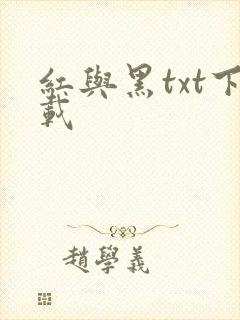 紅與黑txt下
載
趙學義